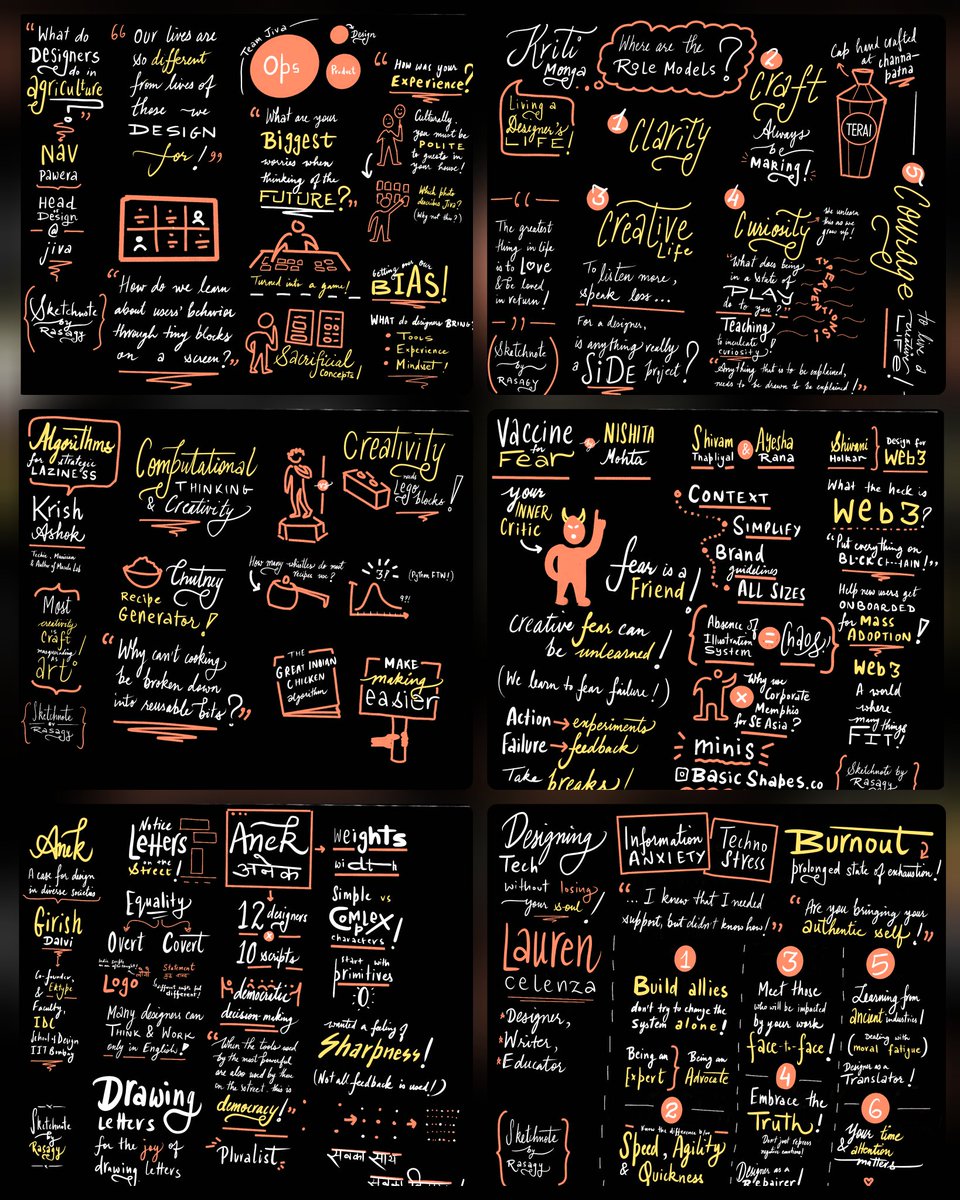 "What do
DESIGNERS
do in
agriculture
?"
NAV
PAWERA
HEAD
of
DESIGN
@
jiva
Sketchnote
by
RASAGY
"Our lives are
so different
from lives of
those we
DESIGN
for!"
"How do we learn
about users' behavior
through tiny blocks
on a screen?"
Team Jiva
Ops
Design
Product
"What are your
BIGGEST
worries when
thinking of the
FUTURE?"
Turned into a game!
Sacrificial
Concepts!
"How was your
Experience?
Culturally,
you must be
POLITE
to guests in
your house!
Which photo
describes Jiva?
(Why not this?)
Getting over our
BIAS!
WHAT do designers BRING?
Tools
Experience
Mindset!
Kriti
Monga
Where are the
ROLE MODELS?
Living a
Designer's
LIFE!
"
The greatest
thing in life
is to LOVE
& be loved
in return!
"
Sketchnote
by
RASAGY
1 Clarity
2
Craft
Always
be
MAKING!
Cap hand crafted
at channa-
patna
TERAI
3
Creative
Life
To listen more,
speak less...
For a designer,
is anything really
a SIDE project?
4
Curiosity
We unlearn
this as we
grow up!
"What does being
in a state of
PLAY
do to you?"
INTERVENTIONS
Teaching
to inculcate
curiosity!
"Anything that is to be explained,
needs to be drawn to be explained!"
5
Courage
to live a
LIFE!
Algorithms
for strategic
LAZINESS
Krish
Ashok
Techie, Musician
& Author of Masala Lab
Most
creativity
is
craft
masquerading
as
art
Sketchnote
by
RASAGY
Computational
THINKING
& Creativity
Chutney
RECIPE
GENERATOR!
"Why can't cooking
be broken down
into reusable bits?"
Creativity
needs
Lego
blocks!
How many whistles do most
recipes use?
3?
??!
(Python FTW!)
THE
GREAT INDIAN
CHICKEN
algorithm
MAKE
making
easier
Vaccine
for
Fear
NISHITA
Mohta
your
INNER
Critic
fear is a
Friend!
creative fear can
be unlearned!
(We learn to fear failure!)
Action → experiments
Failure → feedback
Take breaks!
Shivam
Thapliyal
&
Ayesha
Rana
CONTEXT
SIMPLIFY
Brand
guidelines
ALL SIZES
Absence of
Illustration
System
=
Chaos
Why use
Corporate
Memphis
for SE Asia?
minis
BASIC SHAPES.co
Shivani
Holkar
Design for
Web3
What the heck is
Web3?
"Put everything on
BLOCKCHAIN!"
Help new users get
ONBOARDED
for MASS
ADOPTION!
Web3
A world
where
many things
FIT!
Sketchnote by
RASAGY
Anek
A case for design
in diverse societies
Girish
Dalvi
Co-founder,
& Ektype
Faculty,
IDC
School of Design
IIT Bombay
Sketchnote
by
RASAGY
Notice
LETTERS
in the
street!
Equality
Overt
Covert
LOGO
Statement
Many designers can
THINK & WORK
only in English!
Drawing
LETTERS
for the joy of
drawing letters
Anek
अनेक
12 designers
×
10 scripts
democratic
decision-making
"When the tools used
by the most powerful
are also used by those
on the street, this is
democracy!"
Pluralist
weights
width
Simple vs
COMPLEX
characters!
Start with
primitives
wanted a feeling of
Sharpness!
(Not all feedback is used!)
सबका साथ
Designing
TECH
without losing
your soul!
Lauren
celenza
*Designer,
*Writer,
*Educator
Sketchnote
by
RASAGY
Information
ANXIETY
Techno
STRESS
Burnout
prolonged state of exhaustion!
"... I knew that I needed
support, but didn't know how!"
"Are you bringing your
authentic self!"
1
Build allies
don't try to change the
system alone!
Being an
Expert
Being an
Advocate
2
Know the difference b/w
Speed, Agility
& Quickness
3
Meet those
who will be impacted
by your work
face-to-face!
4
Embrace the
Truth!
Don't just repress
negative emotions!
Designer as a
Repairer!
5
Learning from
ancient industries!
Dealing with
(moral fatigue)
Designer as a
Translator!
6
Your time
& attention
matters